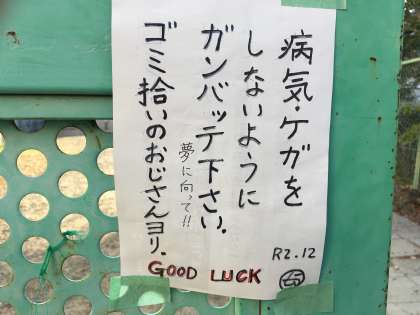 病気・ケガを
しないように
ガンバッテ下さい.
夢に向って!!
ゴミ拾いのおじさんヨリ.
GOOD LUCK
R2.12